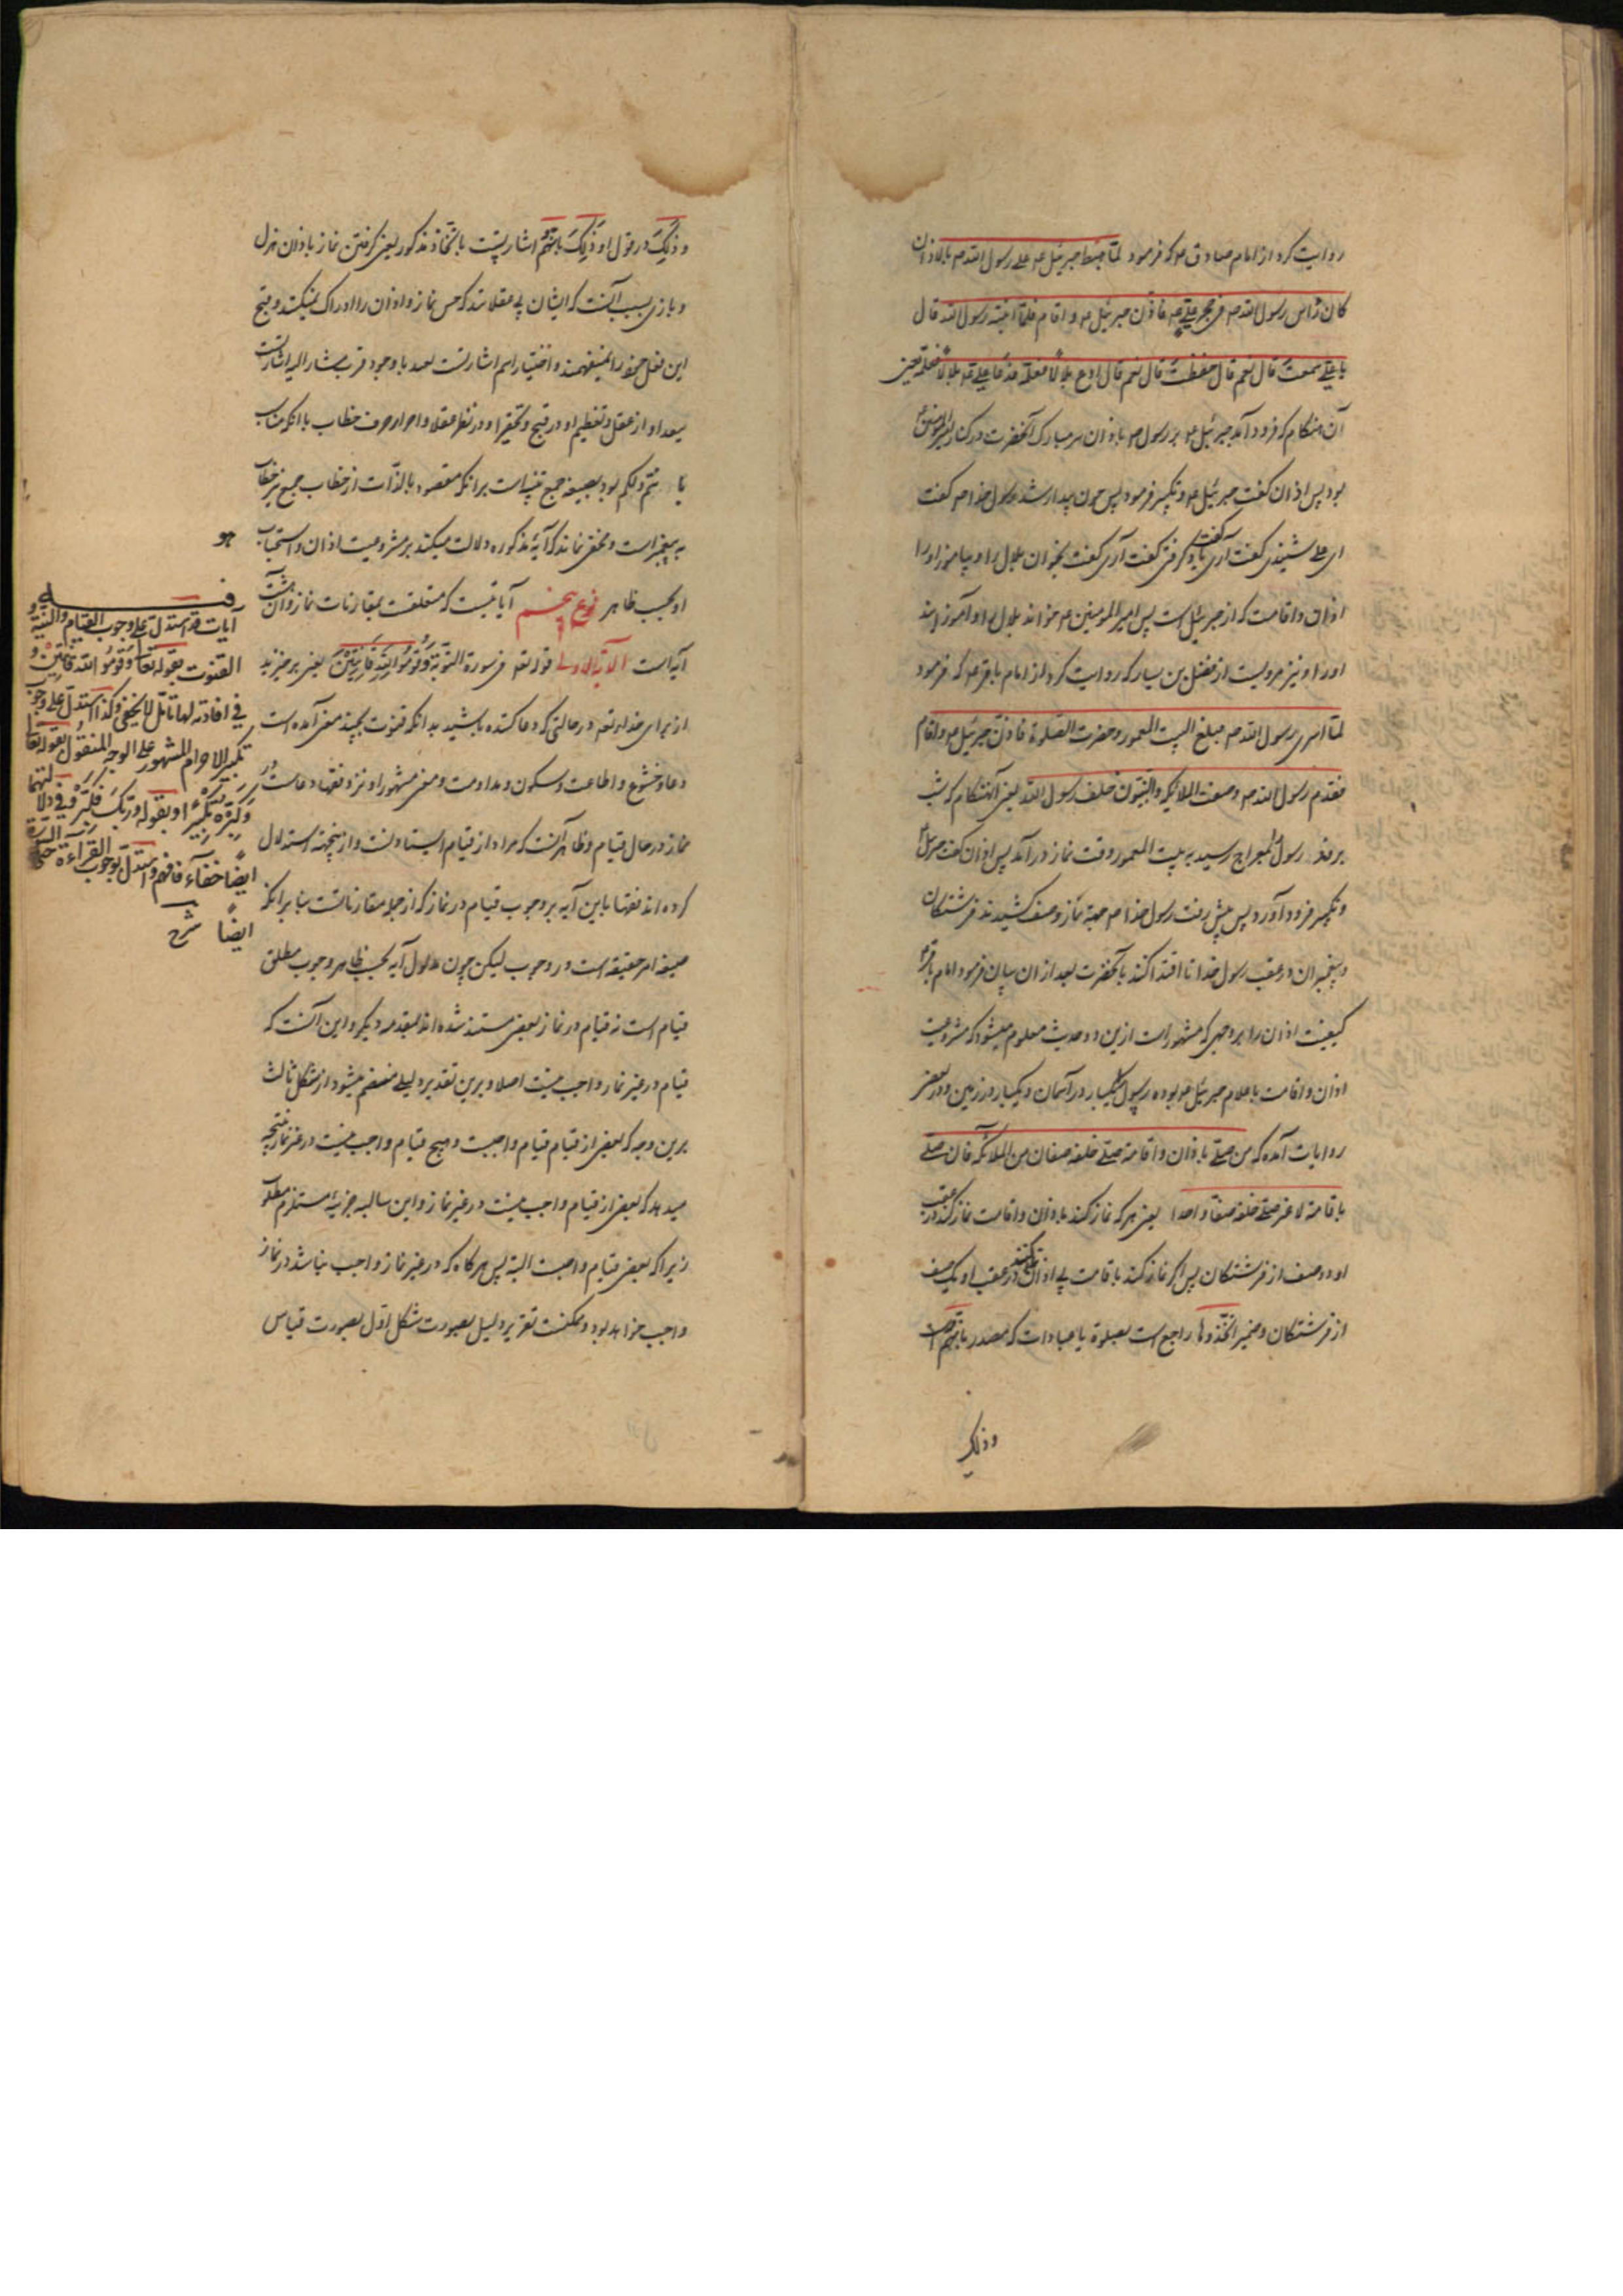 روایت کرد از امام صادق ع م که فرمود لمّا هبط جبرئیل ع م علی رسول الله ص م بالاذان
کان رأس رسول الله ص م فی حجر علیّ ع م فاذّن جبرئیل ع م و اقام فلمّا انتبه رسول الله قال
یا علی سمعت قال نعم قال حفظت قال نعم قال ادع بلالاً فعلّمه فدعا علی ع م بلالاً فعلّمه یعنی
آن هنگام که فرود آمد جبرئیل ع م بر رسول ص م باذان سر مبارک آنحضرت در کنار امیرالمومنین ع
بود پس اذان گفت جبرئیل ع م و تکبیر فرمود پس چون بیدار شد رسول خدا ص م گفت
ای علی شنیدی گفت آری گفت یاد گرفتی گفت آری گفت بخوان بلال را و بیاموز او را
اذان و اقامت که از جبرئیل است پس امیر المومنین ع م خواند بلال را و آموزانید
او را و نیز مرویست از فضیل بن یسار که روایت کرد از امام باقر ع م که فرمود
لمّا اسری رسول الله ص م مبلغ البیت المعمور و حضرت الصّلوة فاذّن جبرئیل ع م و اقام
فتقدم رسول الله ص م و صف الملائکه و النبیّون خلف رسول الله یعنی آنهنگام که بشب
بردند رسول را بمعراج رسید به بیت المعمور وقت نماز درآمد پس اذان گفت جبرئیل ع
و تکبیر فرود آورد پس پیش رفت رسول خدا ص م بجهة نماز و صف کشیدند فرشتگان
و پیغمبران در عقب رسول خدا تا اقتدا کنند بآنحضرت بعد از ان بیان فرمود امام باقر ع
کیفیت اذان را بر وجهی که مشهور است ازین دو حدیث معلوم میشود که مشروعیت
اذان و اقامت باعلام جبرئیل ع م بوده رسول را یکبار در آسمان و یکبار در زمین و در بعضی
روایات آمده که من صلّی باذان و اقامة صلّی خلفه صفان من الملائکه فان صلّی
باقامة لا غیر صلّی خلفه صفّاً واحداً یعنی هر که نماز کند باذان و اقامت نماز کنند در عقب
او دو صف از فرشتگان پس اگر نماز کند باقامت بی اذان نماز کنند در عقب او یک صف
از فرشتگان و ضمیر اتّخذوها راجع است بصلوة یا عبادات که مصدر
وذلک
و ذلک در قول او ذلک بانّهم اشارتست باتّخاذ مذکور یعنی گرفتن نماز باذان هزل
و بازی بسبب آنست که ایشان بی عقلانند که حسن نماز و اذان را ادراک نمیکنند و قبح
این فعل خود را نمیفهمند و اختیار اسم اشارت بعید با وجود قرب مشار الیه اشارتست
ببعد او از عقل و تعظیم او در قبح و تحقیر او در نظر عقلا و احرار حرف خطاب با انکه مناسب
ذلکم بود بصیغه جمع تنبیه است بر انکه مقصود بالذّات از خطاب جمع نیز خطاب
به پیغمبر است و مخفی نماند که آیۀ مذکوره دلالت میکند بر مشروعیت اذان و استحباب
او بحسب ظاهر نوع پنجم آیاتیست که متعلقست بمقارنات نماز و آن هشت
آیه است الآیة الاولی قوله تعه فی سورة البقرة وَقُومُوا لِلّٰهِ قَانِتِینَ یعنی برخیزید
از برای خدای تعه در حالتی که دعا کننده باشید بدانکه قنوت بچند معنی آمده است
دعا و خشوع و اطاعت و سکون و مداومت و معنی مشهور او نزد فقها دعاست در
نماز در حال قیام و ظاهر آنست که مراد از قیام ایستادنست و ازینجهة استدلال
کرده اند فقها باین آیه بر وجوب قیام در نماز که از جمله مقارناتست بنا بر انکه
صیغه امر حقیقه است در وجوب لیکن چون مدلول آیه بحسب ظاهر وجوب مطلق
قیام است نه قیام در نماز بعضی مستند شده اند بمقدمه دیگر و این آنست که
قیام در غیر نماز واجب نیست اصلا و برین تقدیر دلیل منضم میشود از شکل ثالث
برین وجه که بعضی از قیام قیام واجبست و هیچ قیام واجب نیست در غیر نماز نتیجه
میدهد که بعضی از قیام واجب نیست در غیر نماز و این سالبه جزییه مستلزم مطلوبست
زیرا که بعضی قیام واجبست البته پس هرگاه که در غیر نماز واجب نباشد در نماز
واجب خواهد بود و ممکنست تقریر دلیل بصورت شکل اوّل بصورت قیاس
هو
فیه
آیات قد استدلّ علی وجوب القیام والنیّة و
القنوت بقوله تعا وَقُومُوا لِلّٰهِ قَانِتِینَ و
فی افادته لها تامّل لا یخفی وکذا استدلّ علی وجوب
تکبیر الاحرام المشهور علی الوجه المنقول بقوله تعالی
وَکَبِّرْهُ تَکْبِیراً و بقوله وَرَبَّکَ فَکَبِّرْ وفی دلالتهما
ایضاً خفآء فافهم واستدلّ بوجوب القرآءة
ایضاً شرح